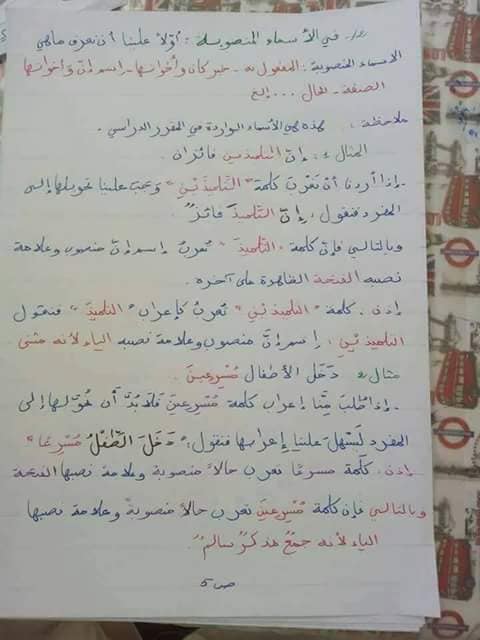 2- في الأسماء المنصوبة : أوّلا علينا أن نعرف ماهي
الأسماء المنصوبة : المفعول به - خبر كان وأخواتها - اسم إنّ وأخواتها
الصفة - الحال ... إلخ
ملاحظة : هذه هي الأسماء الواردة في المقرر الدراسي .
المثال 1 : إنّ التلميذين فائزان .
- إذا أردنا أن نعرب كلمة "التلميذَيْنِ" وجب علينا تحويلها إلى
المفرد فنقول : إنّ التلميذَ فائزٌ .
وبالتالي فإن كلمة "التلميذَ" تُعربُ إسم إنّ منصوب وعلامة
نصبه الفتحة الظاهرة على آخره .
إذن : كلمة "التلميذَيْنِ" تُعربُ كإعراب "التلميذَ" فنقول
التلميذَيْنِ : إسم إنّ منصوب وعلامة نصبه الياء لأنه مثنى
مثال 2 دَخَلَ الأطفال مُسْرِعينَ .
- إذا طُلبَ مِنّا إعراب كلمة مُسْرِعينَ فلا بُدَّ أن نُحَوِّلها إلى
المفرد لِيَسْهُلَ علينا إعرابها فنقول : "دَخَلَ الطِّفْلُ مُسْرِعًا"
إذن : كلمة مسرعًا تعرب حالاً منصوبة وعلامة نصبها الفتحة
وبالتالي فإن كلمة مُسْرِعينَ تعرب حالاً منصوبةً وعلامة نصبها
الياء لأنه جمْعُ مذكرٍ سالمٌ .
ص 5